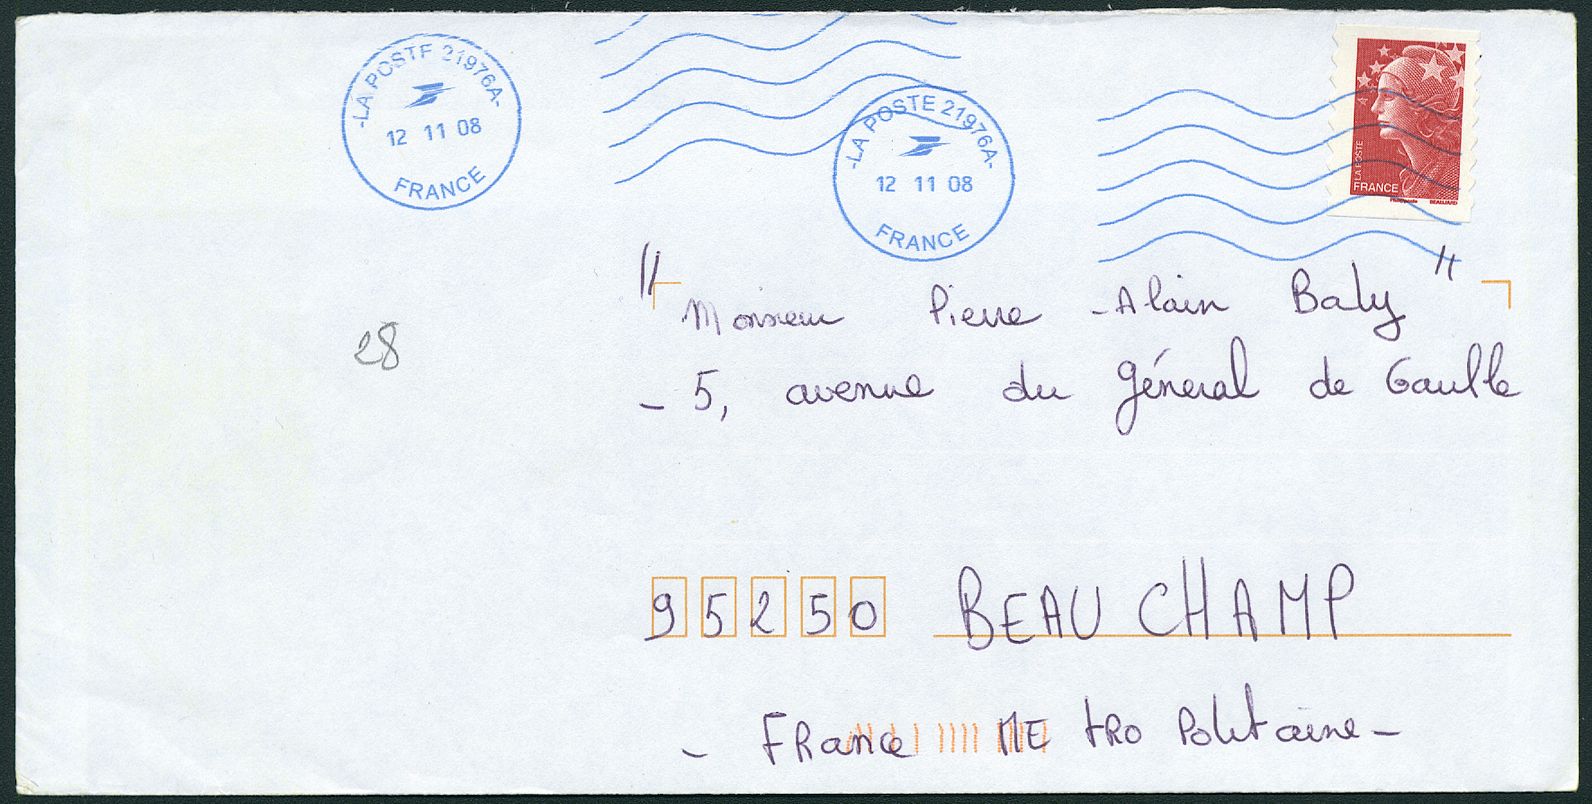 -LA POSTE 21976A-
12 11 08
FRANCE
-LA POSTE 21976A-
12 11 08
FRANCE
LA POSTE
FRANCE
BEAUJARD
" Monsieur Pierre-Alain Baly "
- 5, avenue du Général de Gaulle
28
95250 BEAUCHAMP
- FRance MEtRO Politaine -